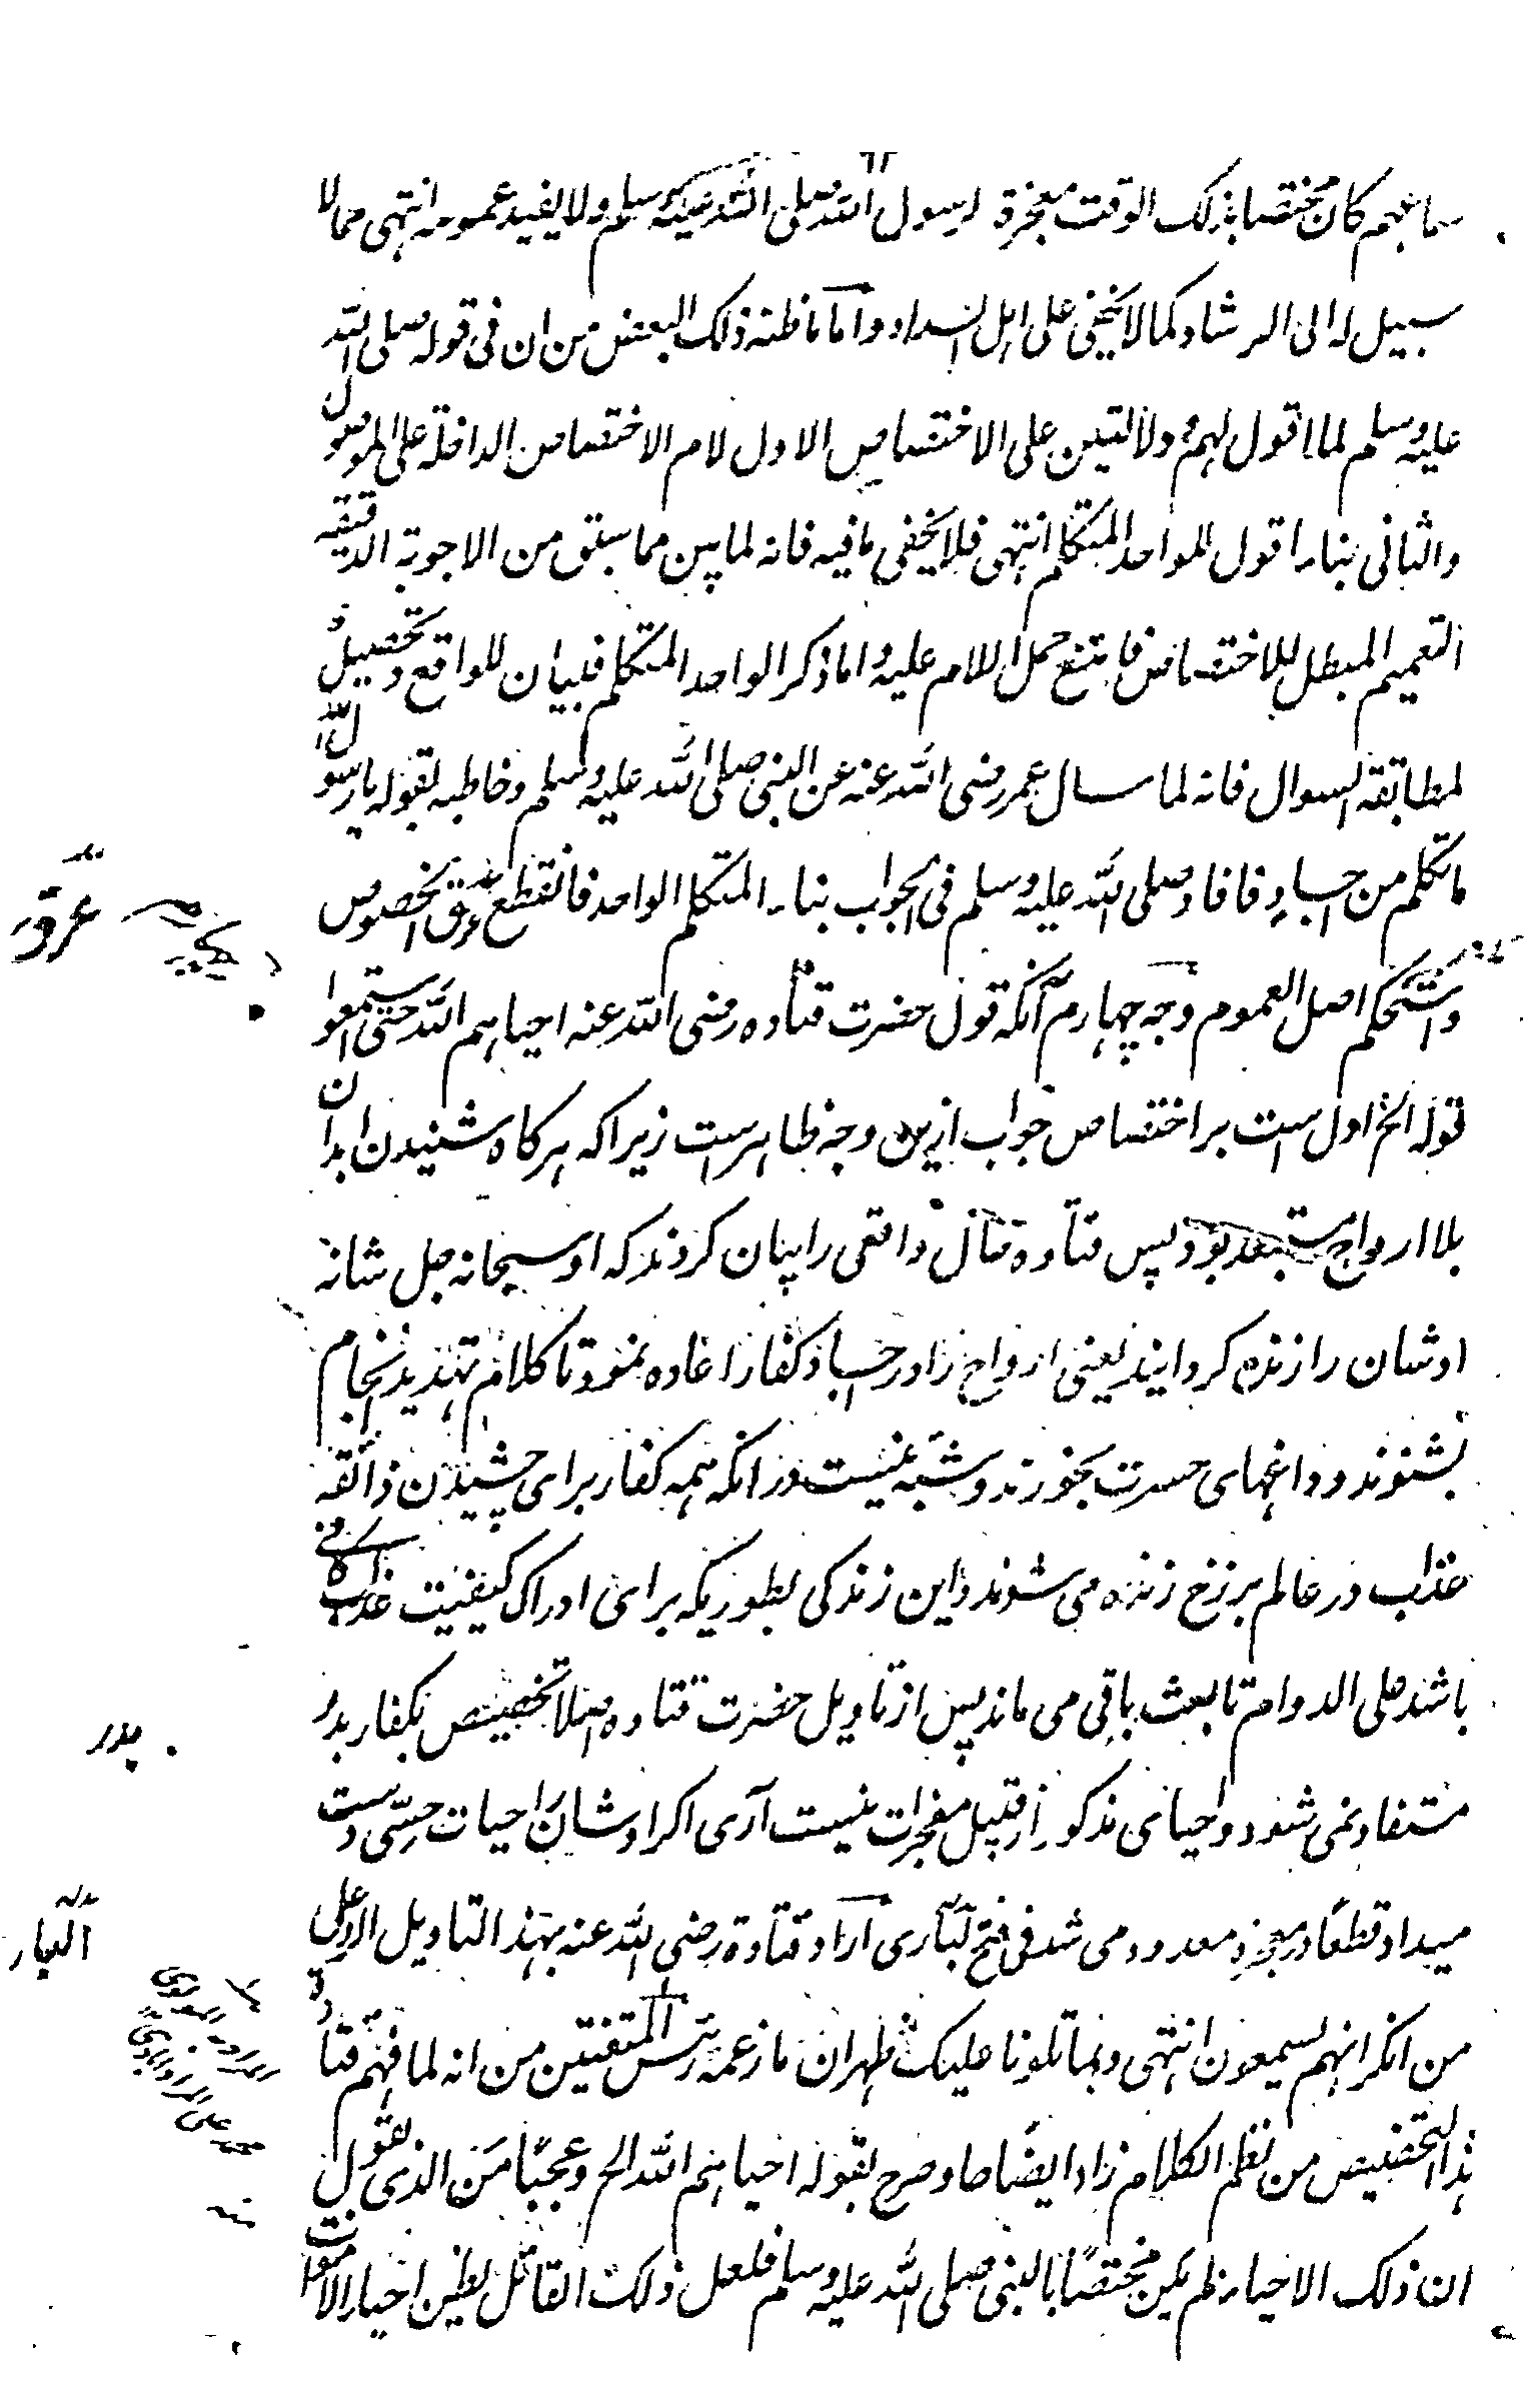 سماعهم كان مختصا بذلك الوقت معجزة لرسول الله صلى الله عليه وسلم ولا يفيد عمومه انتهى مما لا
سبيل له الى الرشاد كما لا يخفى على اهل السداد واما ما ظنه ذلك البعض من ان فى قوله صلى الله
عليه وسلم لما اقول لهم دلالتين على الاختصاص الاول لام الاختصاص الداخلة على الموصول
والثانى بناء اقول للواحد المتكلم انتهى فلا يخفى ما فيه فانه لما بين مما سبق من الاجوبة الدقيقه
التعميم المبطل للاختصاص فامتنع حمل اللام عليه واما ذكر الواحد المتكلم فبيان للواقع وتحصيل
لمطابقة السوال فانه لما سال عمر رضى الله عنه عن النبى صلى الله عليه وسلم وخاطبه بقوله يا رسول الله
ما تكلم من اجساد فافاد صلى الله عليه وسلم فى الجواب بناء المتكلم الواحد فانقطع عرق الخصوص
واستحكم اصل العموم وجه چهارم آنکه قول حضرت قتاده رضى الله عنه احياهم الله حتى اسمعوا
قوله الخ اول است بر اختصاص جواب ازین وجه ظاهر است زیرا که هرگاه شنیدن ابدان
بلا ارواح مستبعد بود پس قتاده قتال واقعی را بیان کردند که او سبحانه جل شانه
اوشان را زنده گردانید یعنی ارواح را در اجساد کفار اعاده نمود تا کلام تهدید انجام
بشنوند و داغهای حسرت بخورند و شبه نیست در آنکه همه کفار برای چشیدن ذائقه
عذاب در عالم برزخ زنده می شوند و این زندگی بطوریکه برای ادراک کیفیت عذاب کافی
باشد على الدوام تا بعث باقی می ماند پس از تاویل حضرت قتاده اصلا تخصیص بکفار بدر
مستفاد نمی شود و احیای مذکور از قبیل معجزات نیست آری اگر اوشان را حیات حسّی دست
میداد قطعًا در معجزه معدود می شد فى فتح البارى اراد قتادة رضى الله عنه بهذا التاويل الرد على
من انكر انهم يسمعون انتهى وبما تلونا عليك ظهر ان ما زعمه رئس المتعنتين من انه لما فهم قتادة
هذا التخصيص من نظم الكلام زاد ايضًاحا وصرح بقوله احياهم الله الخ وعجبًا من الذى يقول
ان ذلك الاحياء لم يكن مختصًا بالنبى صلى الله عليه وسلم فلعل ذلك القائل يظن احياء الاموات
عروة
بدر
البار
منه